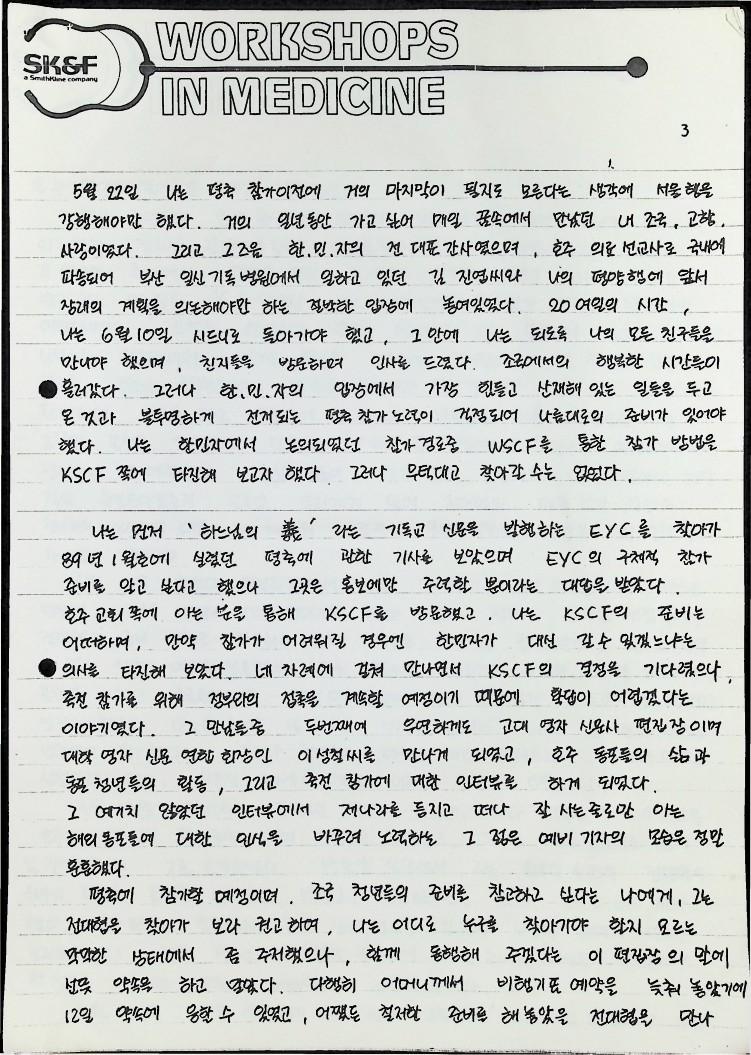 SK&F
a SmithKline company
WORKSHOPS
IN MEDICINE
3
5월 22일 나는 평축 참가이전에 거의 마지막이 될지도 모른다는 생각에 서울행을
강행해야만 했다. 거의 일년동안 가고 싶어 매일 꿈속에서 만났던 내 조국, 고향,
사랑이었다. 그리고 그즈음 한.민.자의 전 대표간사였으며, 호주 의료 선교사로 국내에
파송되어 부산 일신기독병원에서 일하고 있던 김 진엽씨와 나의 평양행에 앞서
장래의 계획을 의논해야만 하는 절박한 입장에 놓여있었다. 20여일의 시간,
나는 6월 10일 시드니로 돌아가야 했고, 그 안에 나는 되도록 나의 모든 친구들을
만나야 했으며, 친지들을 방문하며 인사를 드렸다. 조국에서의 행복한 시간들이
흘러갔다. 그러나 한.민.자의 입장에서 가장 힘들고 산재해 있는 일들을 두고
온 것과 불투명하게 전개되는 평축 참가 노력이 걱정되어 나름대로의 준비가 있어야
했다. 나는 한민자에서 논의되었던 참가 경로중 WSCF를 통한 참가 방법을
KSCF 쪽에 타진해 보고자 했다. 그러나 무턱대고 찾아갈 수는 없었다.
나는 먼저 '하느님의 義' 라는 기독교 신문을 발행하는 EYC를 찾아가
89년 1월호에 실렸던 평축에 관한 기사를 보았으며 EYC의 구체적 참가
준비를 알고 싶다고 했으나 그곳은 홍보에만 주력할 뿐이라는 대답을 받았다.
호주 교회 쪽에 아는 분을 통해 KSCF를 방문했고. 나는 KSCF의 준비는
어떠하며, 만약 참가가 어려워질 경우엔 한민자가 대신 갈 수 있겠느냐는
의사를 타진해 보았다. 네 차례에 걸쳐 만나면서 KSCF의 결정을 기다렸으나,
축전 참가를 위해 정부와의 접촉을 계속할 예정이기 때문에 확답이 어렵겠다는
이야기였다. 그 만남들중 두번째에 우연하게도 고대 영자 신문사 편집장이며
대학 영자 신문 연합 회장인 이성철씨를 만나게 되었고, 호주 동포들의 삶과
동포 청년들의 활동, 그리고 축전 참가에 대한 인터뷰를 하게 되었다.
그 예기치 않았던 인터뷰에서 제나라를 등지고 떠나 잘 사는줄로만 아는
해외동포들에 대한 인식을 바꾸려 노력하는 그 젊은 예비 기자의 모습은 정말
훈훈했다.
평축에 참가할 예정이며. 조국 청년들의 준비를 참고하고 싶다는 나에게, 그는
전대협을 찾아가 보라 권고하며, 나는 어디로 누구를 찾아가야 할지 모르는
막막한 상태에서 좀 주저했으나, 함께 동행해 주겠다는 이 편집장의 말에
선뜻 약속을 하고 말았다. 다행히 어머니께서 비행기표 예약을 늦춰 놓았기에
12일 약속에 응할 수 있었고, 어쨌든 철저한 준비를 해 놓았을 전대협을 만나